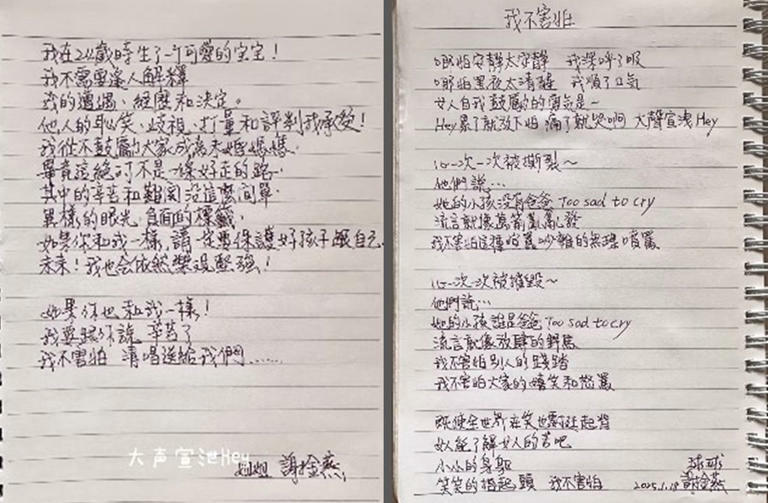 我在24歲時生了一个可愛的宝宝！
我不需要逢人解釋
我的遭遇、經歷和決定。
他人的恥笑、歧視、打量和評判我承受！
我從不鼓勵大家成為未婚媽媽.
畢竟這絕對不是一條好走的路.
其中的辛苦和難關沒這麼簡單.
異樣的眼光,負面的標籤.
如果你和我一樣,請一定要保護好孩子跟自己.
未來！我也会依然樂觀堅強！
如果你也和我一樣！
我要跟你說 辛苦了
我不害怕 清唱送給我們......
大声宣泄Hey
謝金燕
我不害怕
哪怕安靜太安靜 我深呼了吸
哪怕黑夜太清醒 我順了口氣
女人自我鼓勵的勇氣是~
Hey累了就放下唄 痛了就哭啊 大聲宣洩Hey
心一次一次被撕裂~
他們說...
她的小孩沒有爸爸 Too sad to cry
流言就像萬箭亂亂發
我不害怕這種喧囂吵雜的無理嘖罵
心一次一次被摧毀~
他們說...
她的小孩誰是爸爸 Too sad to cry
流言就像放肆的野馬
我不害怕別人的踐踏
我不害怕大家的嘻笑和怒罵
既使全世界在笑也要挺起背
女人能了解女人的苦吧
小小的身軀
笑笑的抬起頭 我不害怕
謝金燕